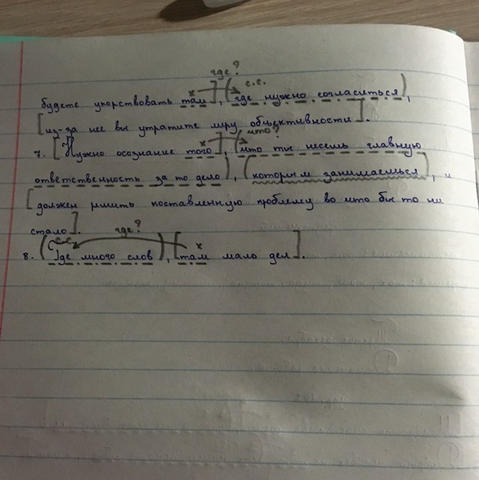 где?
будете упорствовать там], (где нужно согласиться), с.с.
[из-за нее вы утратите меру объективности].
7. [Нужно осознание того], (что ты несешь главную что?
ответственность за то дело), (которым занимаешься), и
[должен решить поставленную проблему во что бы то ни
стало].
где?
8. (Где много слов), [там мало дел]. с.с.